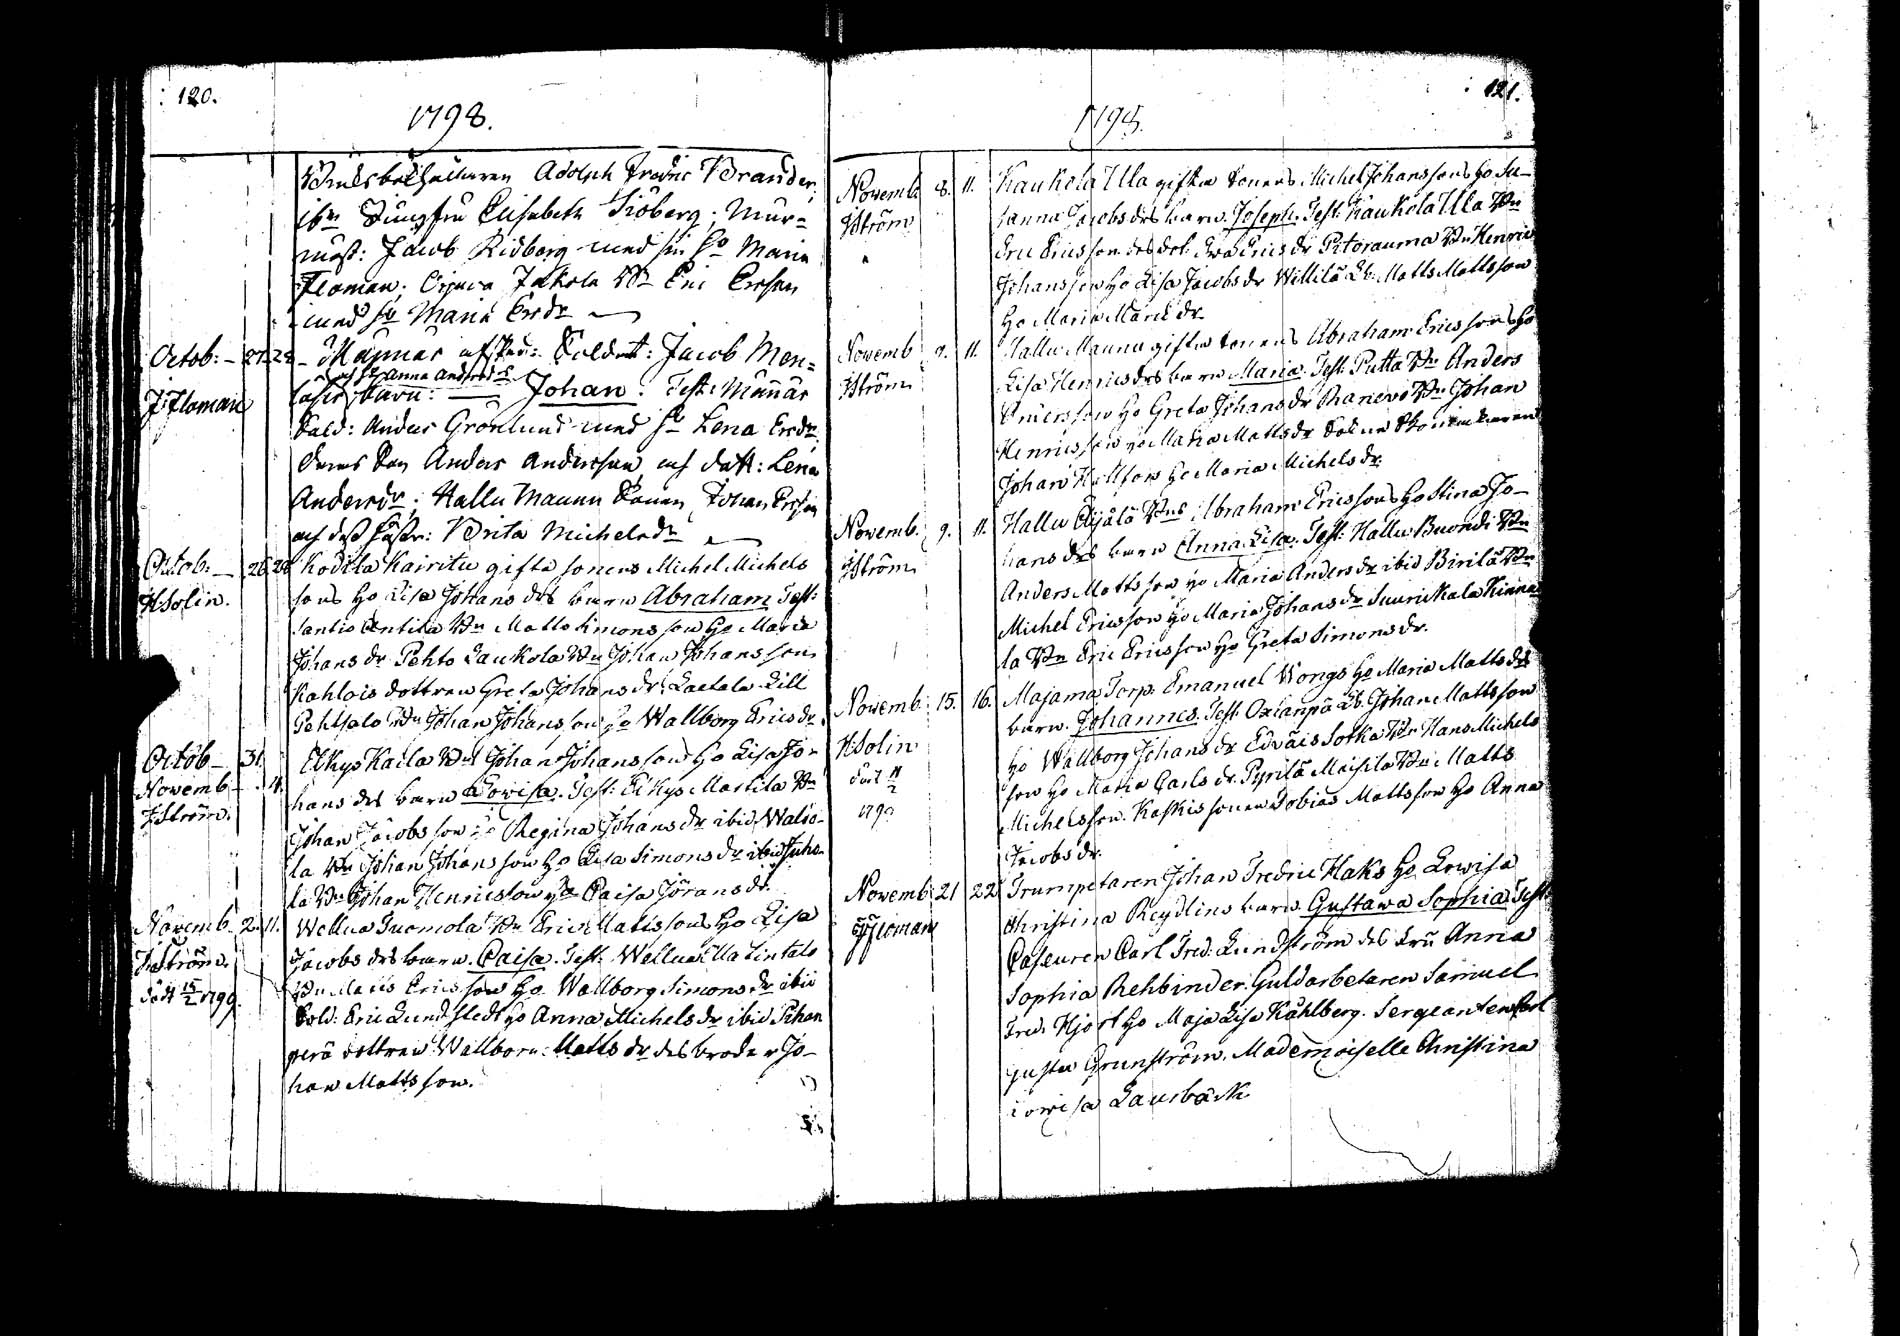 120.
1798.
Adolph Fredric Brander
Jungfru Elisabeth Siöberg; Mur-
mäst: Jacob Ridberg med sin ho Maria
Floman. Jakola Bn Eric Ersson
med ho Maria Ersdr
Octob: — 27. 28 Männäs Soldat: Jacob Mon-
och ho Anna Andersdr
J Floman barn: Johan. Test: Männäs
Sold: Anders Grönlund med ho Lena Ersdr
Anders Andersson och dott: Lena
Andersdr; Hallu Maunu Sonen Johan Ersson
och dess Brita Michelsdr
Octob: — 26 28 Kodila Kairitu gifta sonens Michel Michels
H Solin. sons ho Lisa Johans drs barn Abraham Test:
Santio Antila Bn Matts Simonsson ho Maria
Johans dr Pehto Laukola Bn Johan Johansson
Kahlois dottren Greta Johans dr. Laetala Lill
Pehtsalo Bn Johan Johansson ho Wallborg Erics dr.
Octob — 31. Elkys Kaila Bns Johan Johanssons ho Lisa Jo-
Novemb — 4. hans drs barn Lovisa. Test: Elkys Martila Bn
J Ström. Johan Jacobsson ho Regina Johans dr ibid Walio-
la Bn Johan Johansson ho Lisa Simons dr ibid Juho-
la Bn Johan Henricsson ho Caisa Jörans dr.
Novemb. 2. 11. Wellua Tuomola Bn Eric Matssons ho Lisa
J Ström. Jacobs drs barn. Caisa. Test. Wellua Ylla Tintala
död 15/2 1799. Bn Matts Ericsson ho Wallborg Simons dr ibid
Sold: Eric Lundstedt ho Anna Michels dr ibid Pihan
perä dottren Wallborn: Matts dr des broder Jo-
han Mattsson.
121.
1798.
Novemb. 8. 11. Kaukola Ylla gifta sonens Michel Johanssons ho Su-
J Ström sanna Jacobs drs barn. Joseph. Test: Kaukola Ylla Bn
Eric Ericsson des dot. Eva Erics dr Pitorauma Bn Henric
Johansson ho Lisa Jacobs dr Willilä Matts Mattsson
ho Maria dr.
Novemb 9. 11. Hallu Maunu gifta sonens Abraham Ericssons ho
J Ström Lisa Henrics drs barn Maria. Test: Putta Bn Anders
Andersson ho Greta Johans dr Bn Johan
Henricsson ho Maria Matts dr
Johan ho Maria Michels dr.
Novemb. 9. 11. Hallu Äijälä Bns Abraham Ericssons ho Stina Jo-
J Ström hans drs barn Anna Lisa. Test: Hallu Buondi Bn
Anders Mattsson ho Maria Anders dr ibid Birilä Bn
Michel Ericsson ho Maria Johans dr Suurikkala Kinna-
la Bn Eric Ericsson ho Greta Simons dr.
Novemb. 15. 16. Majama Torp. Emanuel Wongs ho Maria Matts drs
H Solin barn. Johannes. Test: Oxianpä Johan Mattsson
död 11/2 ho Wallborg Johans dr Edväis Sorka Bn Hans Michels
1799 son ho Maria Carls dr. Pyrilä Maisila Bn Matts
Michelsson. Kaskis sonen Tobias Mattsson ho Anna
Jacobs dr.
Novemb. 21 22 Trumpetaren Johan Fredric Haks ho Lowisa
J Floman Christina Reydlins barn Gustava Sophia Test:
Carl Fred: Lundström des fru Anna
Sophia Rehbinder. Guldarbetaren Samuel
Fred. Hjort ho Maja Lisa Kåhlberg. Sergeanten Carl
Gustav Grunström. Mademoiselle Christina
Lowisa Laurbäck